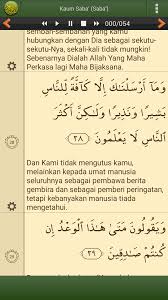 Kaum Saba' (Saba')
000/054
sembahan-sembahan yang kamu
hubungkan dengan Dia sebagai sekutu-
sekutu-Nya, sekali-kali tidak mungkin!
Sebenarnya Dialah Allah Yang Maha
Perkasa lagi Maha Bijaksana.
وَمَآ أَرْسَلْنَٰكَ إِلَّا كَآفَّةً لِّلنَّاسِ
بَشِيرًا وَنَذِيرًا وَلَٰكِنَّ أَكْثَرَ
ٱلنَّاسِ لَا يَعْلَمُونَ ٢٨
28
Dan Kami tidak mengutus kamu,
melainkan kepada umat manusia
seluruhnya sebagai pembawa berita
gembira dan sebagai pemberi peringatan,
tetapi kebanyakan manusia tiada
mengetahui.
وَيَقُولُونَ مَتَىٰ هَٰذَا ٱلْوَعْدُ إِن
كُنتُمْ صَٰدِقِينَ ٢٩
29